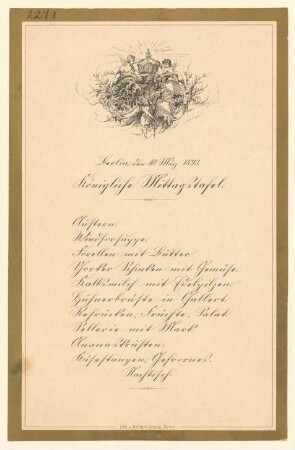 2271
Berlin, den 10 März 1893.
Königliche Mittagstafel.
Austern.
Windsorsuppe.
Forellen mit Butter.
Yorker Schinken mit Gemüse.
Kalbsmilch mit Pielzitzen.
Hühnerbrüste in Gallert.
Rehrücken, Früchte, Salat
Sellerie mit Mark
Ananaskrusten.
Käsestangen, Gefrornes.
Nachtisch.